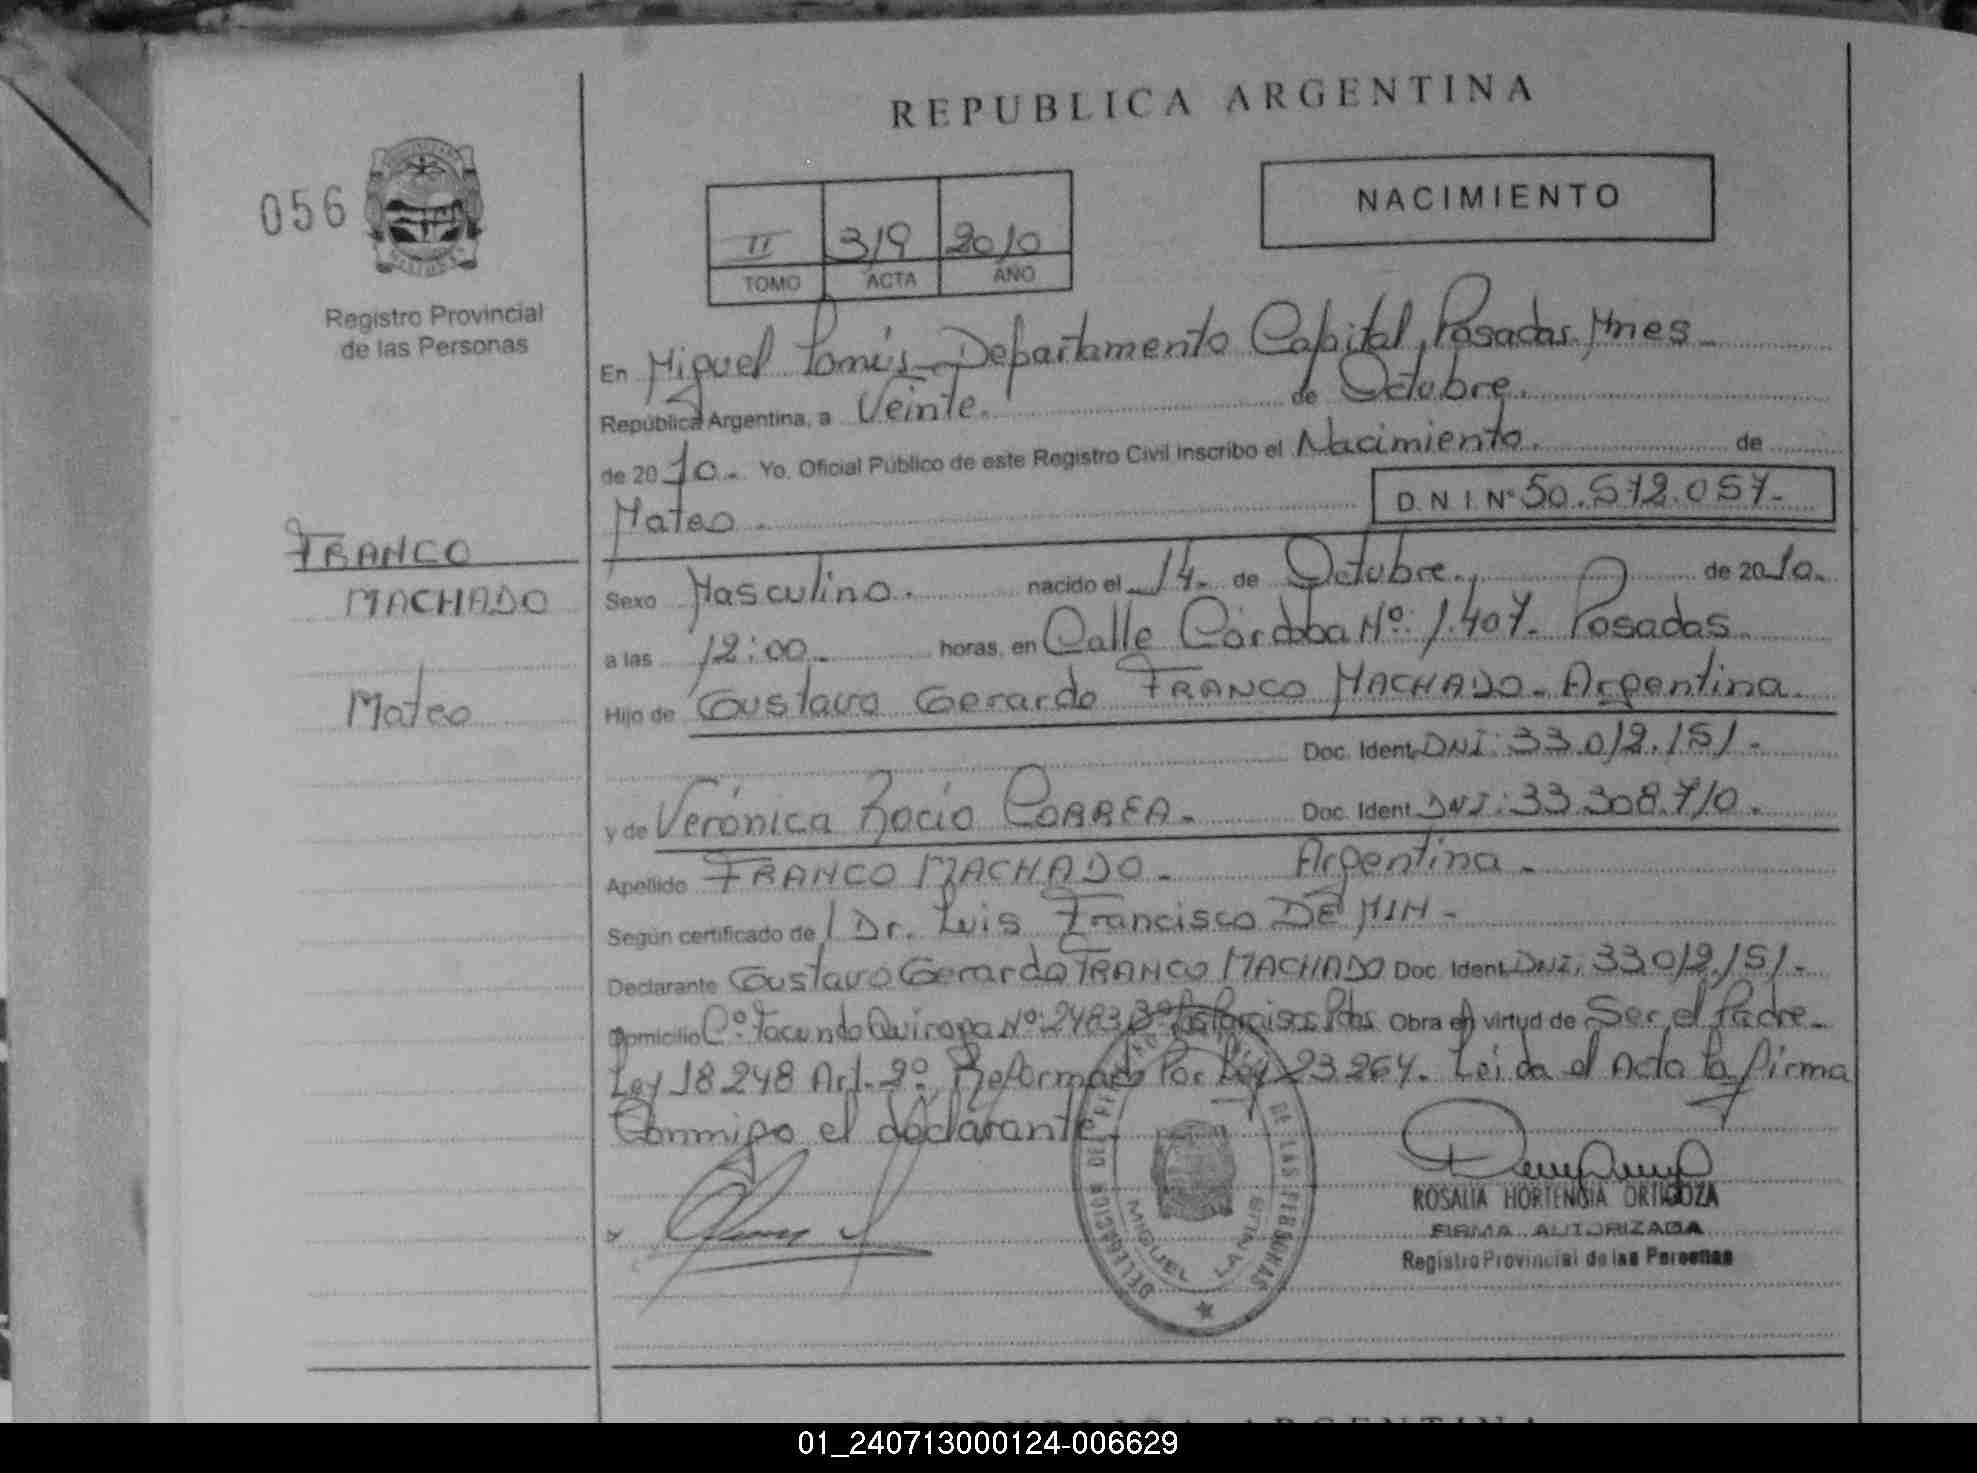 REPUBLICA ARGENTINA
056
NACIMIENTO
II 319 2010
TOMO ACTA AÑO
Registro Provincial
de las Personas
En Miguel Lanús - Departamento Capital, Posadas. Mnes -
República Argentina, a Veinte. de Octubre.
de 20 10 - Yo. Oficial Público de este Registro Civil inscribo el Nacimiento. de
Mateo - D.N.I. Nº 50.572.057-
FRANCO
MACHADO
Mateo
Sexo Masculino. nacido el 14- de Octubre., de 20 10-
a las 12:00- horas, en Calle Córdoba Nº: 1.407- Posadas
Hijo de Gustavo Gerardo FRANCO MACHADO - Argentina
Doc. Ident. DNI: 33.012.151-
y de Verónica Rocío CORREA - Doc. Ident. DNI: 33.308.710-
Apellido FRANCO MACHADO - Argentina -
Según certificado de / Dr. Luis Francisco DE MIN -
Declarante Gustavo Gerardo FRANCO MACHADO Doc. Ident. DNI: 33.012.151-
Domicilio Cº. Facundo Quiroga Nº: 2483 Bº Pdas Obra en virtud de Ser el Padre -
Ley 18.248 Art. 2º, Reformado Por Ley 23.264. Leída el Acta la firma
Conmigo el declarante.
DELEGACION DEL REGISTRO DE LAS PERSONAS
MIGUEL LANUS
ROSALIA HORTENCIA ORTIGOZA
FIRMA AUTORIZADA
Registro Provincial de las Personas
REPUBLICA ARGENTINA
01_240713000124-006629